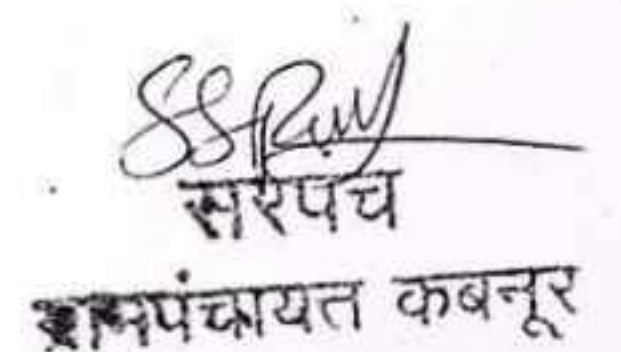 सरपंच
ग्रामपंचायत कबनूर